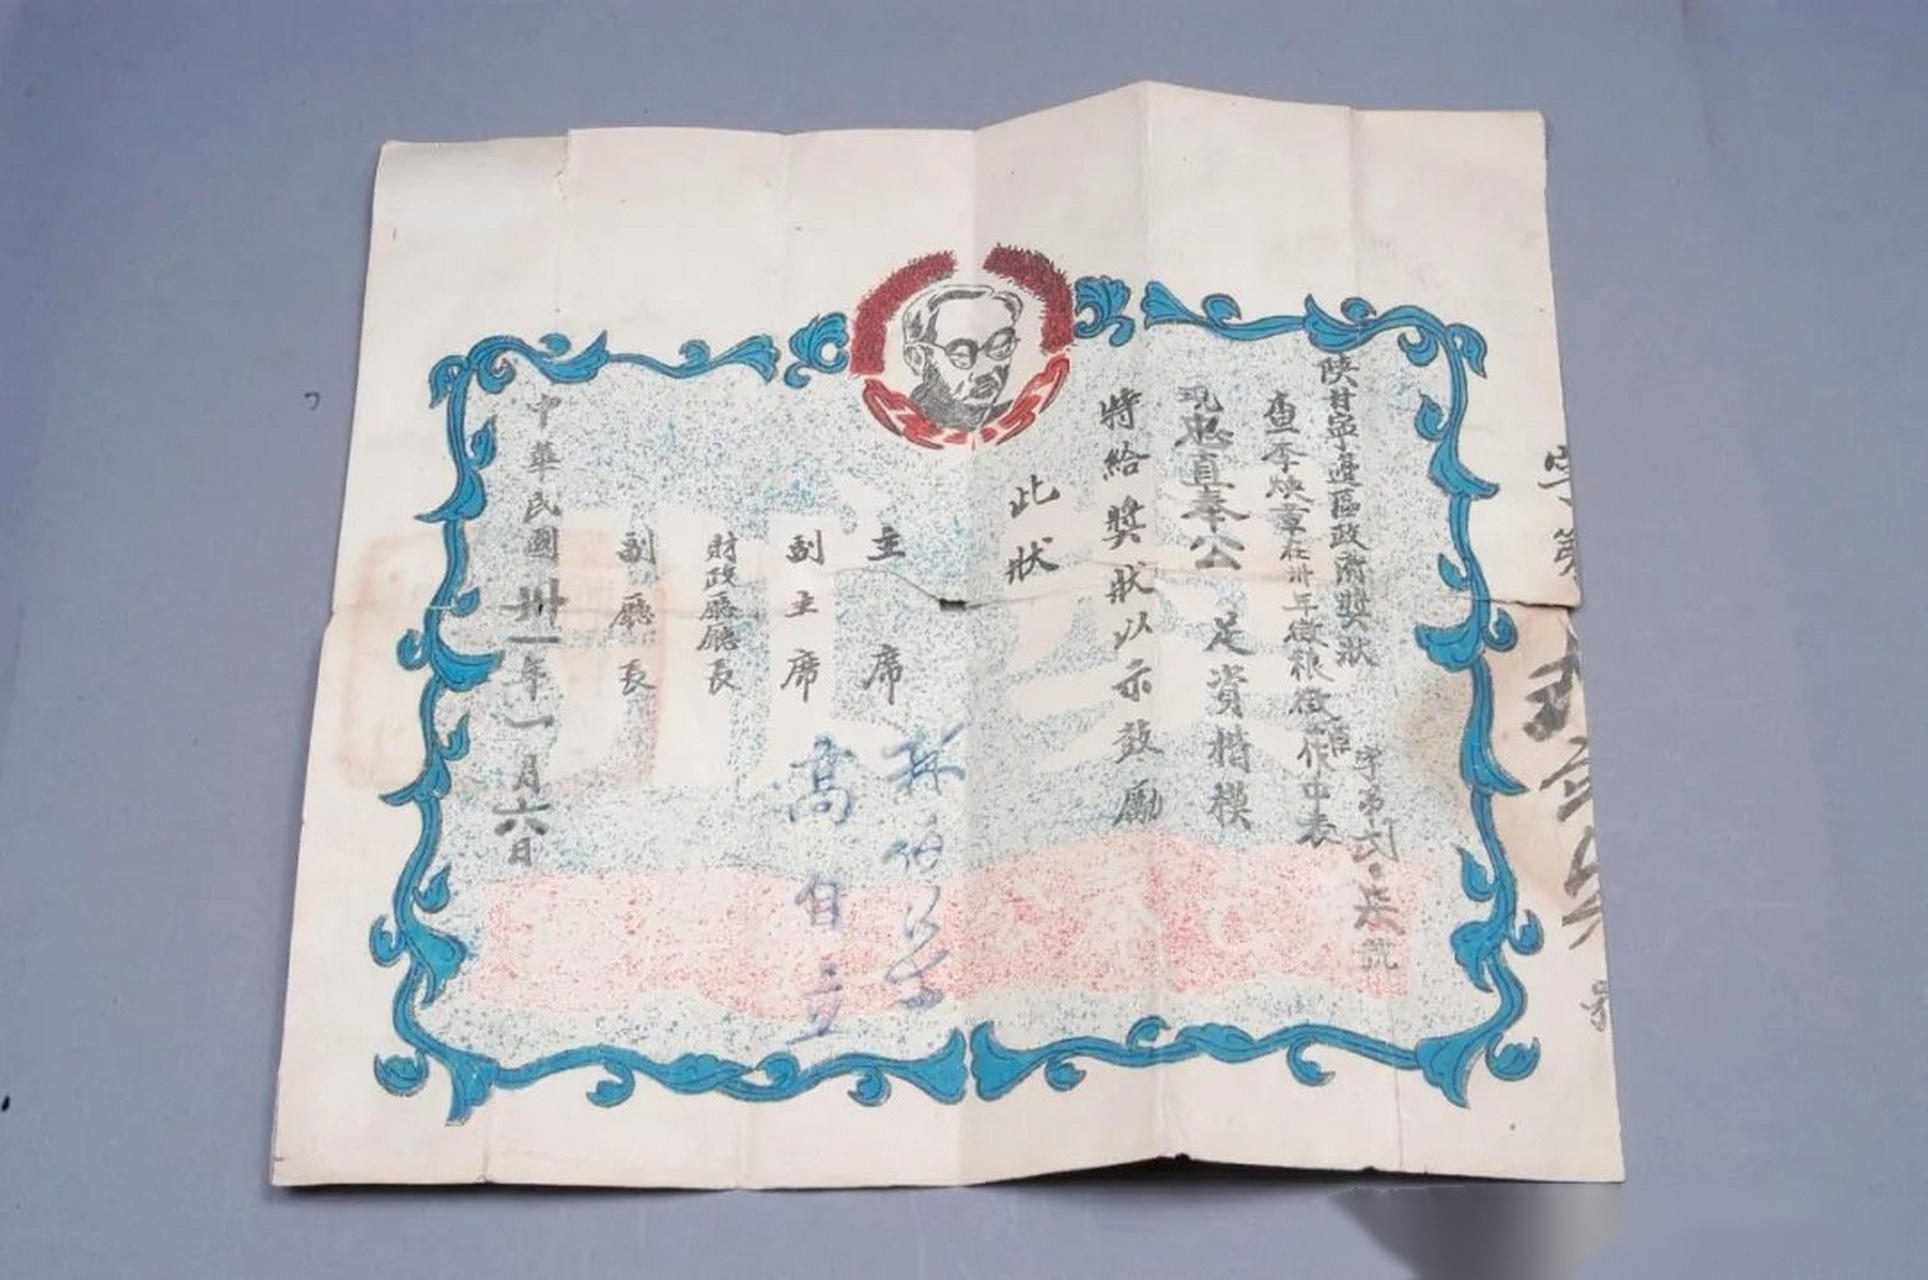 陝甘寧邊區政府獎狀
字第弍·柒號
查李焕章在卅年徵粮徵草工作中表
現忠直奉公足資楷模
特給獎狀以示鼓勵
此狀
主席 林伯渠
副主席 高自立
財政廳廳長
副廳長
中華民國卅一年一月六日